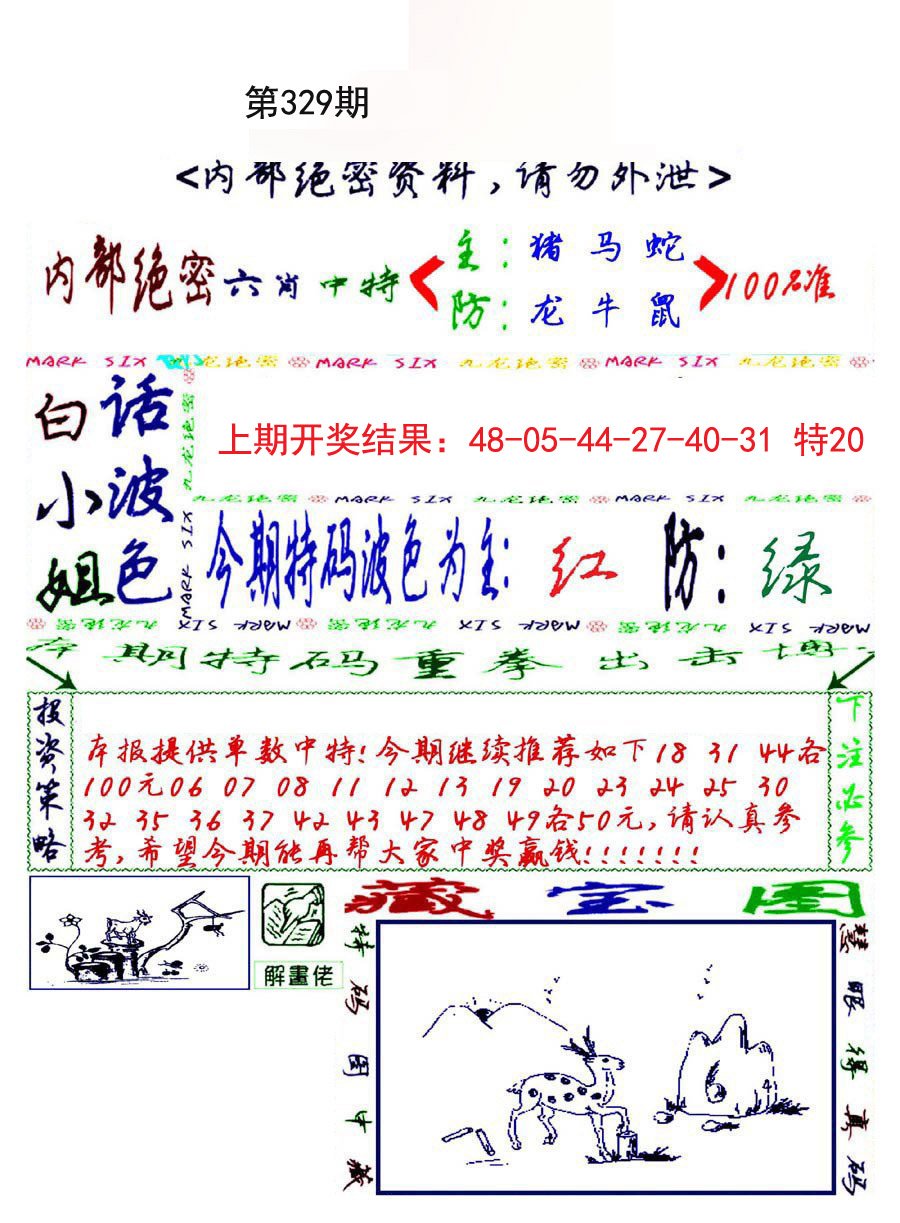 第329期
<内部绝密资料，请勿外泄>
内部绝密六肖中特
主：猪 马 蛇
防：龙 牛 鼠
100%准
MARK SIX 九龙绝密 MARK SIX 九龙绝密 MARK SIX 九龙绝密
白小姐
话波色
九龙绝密
MARK SIX
上期开奖结果：48-05-44-27-40-31 特20
九龙绝密 MARK SIX 九龙绝密 MARK SIX 九龙绝密
今期特码波色为主：红 防：绿
九龙绝密 MARK SIX MARK SIX 九龙绝密 MARK SIX 九龙绝密 MARK SIX
本期特码重拳出击
投资策略
本报提供单数中特！今期继续推荐如下18 31 44各
100元06 07 08 11 12 13 19 20 23 24 25 30
32 35 36 37 42 43 47 48 49各50元，请认真参
考，希望今期能再帮大家中奖赢钱！！！！！！！
下注必参
解畫佬
藏宝图
特码图中藏
慧眼得真码
6
4